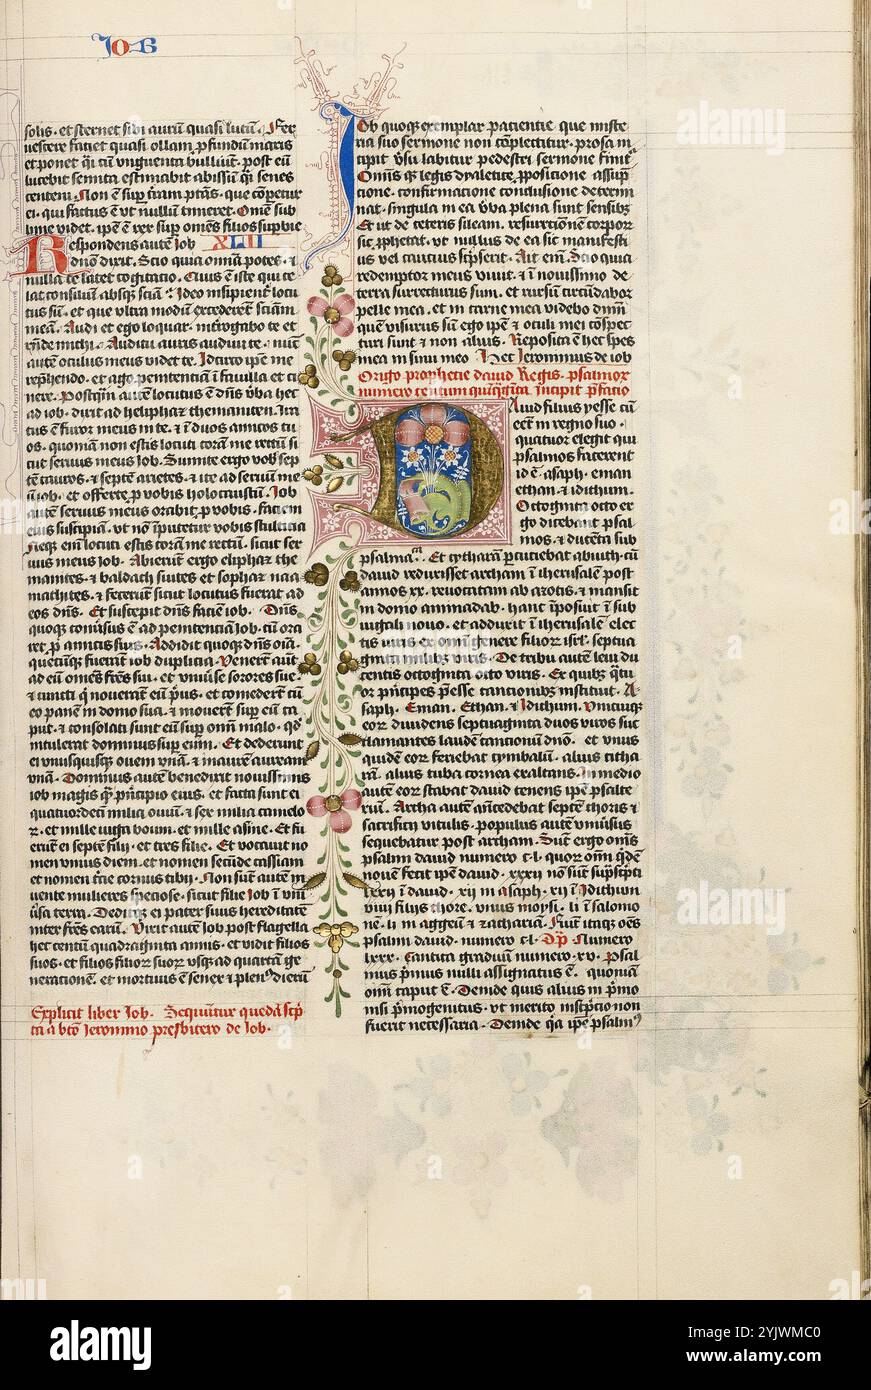 IOB
solis · et sternet sibi aurū quasi lutū · Fer
uescere faciet quasi ollam · pfundū maris
et ponet q̄i cū vnguenta bulliunt · post eū
lucebit semita estimabit abissum q̄i senes
centem · Non ē sup t̄ram ptās · que cōpetur
ei · qui factus ē vt nullū timeret · Omē sub
lime videt · ipē ē rex sup om̄es filios supbie
Respondens autē Iob XLII
dn̄o dixit · Scio quia omīa potes · et
nulla te latet cogitatio · Quis ē iste qui ce
lat consiliū absq̄ sciā · Ideo insipient̄ locu
tus sū · et que ultra modū excederēt sciam
meā · Audi et ego loquar · introgabo te et
rn̄de michi · Auditu auris audiui te · nūc
autē oculus meus videt te · Idcirco ipē me
rephendo · et ago penitentiā ī fauilla et ci
nere · Postq̄m autē locutus ē dn̄s v̄ba hec
ad iob · dixit ad heliphaz themaniten · Ira
tus ē furor meus in te · et ī duos amicos tu
os · quoniam non estis locuti corā me rectū si
cut seruus meus iob · Sumite ergo vob̄ sep
tē tauros · et septē arietes · et ite ad seruū me
ū iob · et offerte p vobis holocaustū · Iob
autē seruus meus orabit p vobis · faciem
eius suscipiā · vt nō īputetur vobis stulticia
Neq̄ enī locuti estis corā me rectū · sicut ser
uus meus iob · Abierūt ergo eliphaz the
manites · et baldach suites et sophar naa
mathites · et fecerūt sicut locutus fuerat ad
eos dn̄s · Et suscepit dn̄s faciē iob · Dn̄s
quoq̄ conūsus ē ad penitentiā iob · cū ora
ret p amicis suis · Addidit quoq̄ dn̄s oīa ·
quecūq̄ fuerāt iob duplicia · Venerūt aūt
ad eū om̄es fr̄es sui · et vniūse sorores sue
et cuncti q̄ nouerāt eū p̄us · et comederūt cū
eo panē in domo sua · et mouerūt sup eū ca
put · et consolati sunt eū sup om̄i malo · qd̄
intulerat dominus sup eum · Et dederunt
ei vnusquisq̄ ouem vnā · et inaurē aurean
vnā · Dominus autē benedixit nouissimis
iob magis q̄ p̄ncipio eius · et facta sunt ei
quatuordecī milia ouiū · et sex milia camelo
rū · et mille iuga boum · et mille asine · Et fu
erūt ei septē filii · et tres filie · Et vocauit no
men vnius diem · et nomen secūde cassiam
et nomen t̄cie cornus tibii · Non sūt autē in
uente mulieres speciose · sicut filie Iob ī vni
ūsa terra · Deditq̄ ei pater suus hereditatē
inter fr̄es earū · Vixit autē Iob post flagella
hec centū quadraginta annis · et vidit filios
suos · et filios filiorū suorū vsq̄ ad quartā ge
nerationē · et mortuus ē senex et plenus dierū
Explicit liber Iob · Sequūtur quedā scp̄
ta a bt̄o Ieronimo presbitero de Iob ·
Iob quoq̄ exemplar patientie que miste
ria suo sermone non cōplectitur · prosa in
cipit v̄su labitur pedestri sermone finit̄
Om̄isq̄ legis dyaletice pposicione assūp
cione · confirmacione conclusione determi
nat · singula in ea v̄ba plena sunt sensibȝ
Et ut de ceteris sileam · resurectionē corporū
sic pphetat · vt nullus de ea sic manifesti
us vel cautius sc̄pserit · Ait enī Scio quia
redemptor meus viuit · et ī nouissimo de
terra surrecturus sum · et rursū circūdabor
pelle mea · et in carne mea videbo dm̄m
quē visurus sū ego ipē et oculi mei cōspec
turi sunt et non alius · Reposita ē hec spes
mea in sinu meo · Hec Ieronimus de iob
Origo prophecie dauid Regis · psalmorū
numero centum quīq̄gīta Incipit p̄facio
Dauid filius yesse cū
eēt in regno suo ·
quatuor elegit qui
psalmos facerent
id ē asaph · eman
ethan · et idithum ·
Octoginta octo er
go dicebant psal
mos · et ducēta sub
psalma · Et cytharā pcutiebat abiuth · cū
dauid reduxisset archam ī iherusalē post
annos xx · reuocatam ab azotis · et mansit
in domo aminadab · hanc īposuit ī sub
iugali nouo · et adduxit ī iherusalē elec
tis viris ex om̄i genere filiorū isrl̄ · septua
ginta milibȝ viris · De tribu autē leui du
centis octoginta octo viris · Ex quibȝ q̄tu
or p̄ncipes p̄esse cantionibȝ instituit · A
saph · Eman · Ethan · et Idithum · Vnicuiq̄
eorū diuidens septuaginta duos viros suc
clamantes laudē cantionū dn̄o · et vnus
quidē eorū feriebat cymbalū · alius citha
rā · alius tuba cornea exaltans · In medio
autē eorū stabat dauid tenens ipē psalte
riū · Archa autē an̄cedebat septē choris et
sacrificiū vitulis · populus autē vniūsus
sequebatur post archam · Sūt ergo om̄s
psalmi dauid numero c · l · quorū om̄i q̄dē
nouē fecit ipē dauid · xxxii nō sūt sup̄sc̄pti
lxxii ī dauid · xii in asaph · xii ī Idithum
viiii filiis chore · vnus moysi · ii ī salomo
nē · ii in aggeū et zachariam · Fiūt itaq̄ oēs
psalmi dauid · numero c · l · Dp̄ Numero
lxxv · Cantica graduū numero · xv · Psal
mus p̄mus nulli assignatus ē · quoniam
om̄i caput ē · Deinde quis alius in p̄mo
nisi p̄mogenitus · vt merito inscp̄tio non
fuerit necessaria · Deinde q̄a ipē psalm̄
alamy
Image ID: 2YJWMC0
www.alamy.com